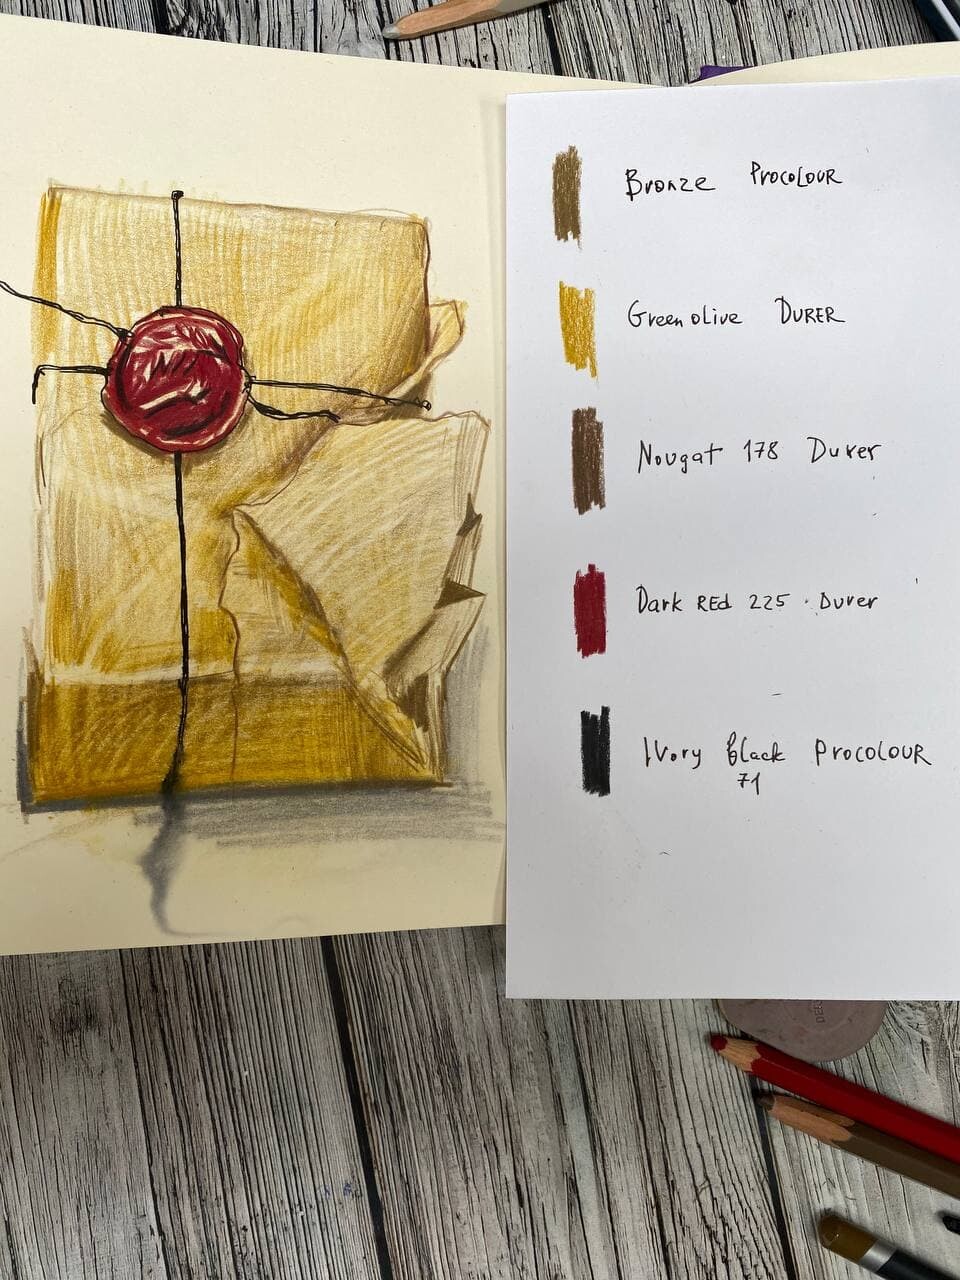 Bronze PROCOLOUR
Green olive DURER
Nougat 178 Durer
Dark REd 225 · Durer
Ivory Black PROCOLOUR
71